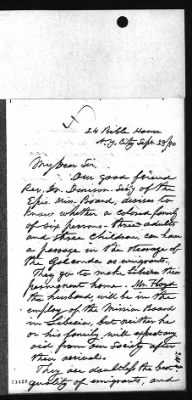 24 Bible House
N.Y. City Sept. 23/80
My Dear Sir
Our good friend
Rev. Dr. Denison Secy of the
Epis. Miss. Board, desires to
know whether a colored family
of six persons - three adults
and three children, can have
a passage in the steerage of
the Golconda as emigrants.
They go to make Liberia their
permanent home. Mr. Floyd
the husband, will be in the
employ of the Mission Board
in Liberia, but neither he
or his family will expect any
aid from our Society after
their arrival.
They are doubtless the best
quality of emigrants, and